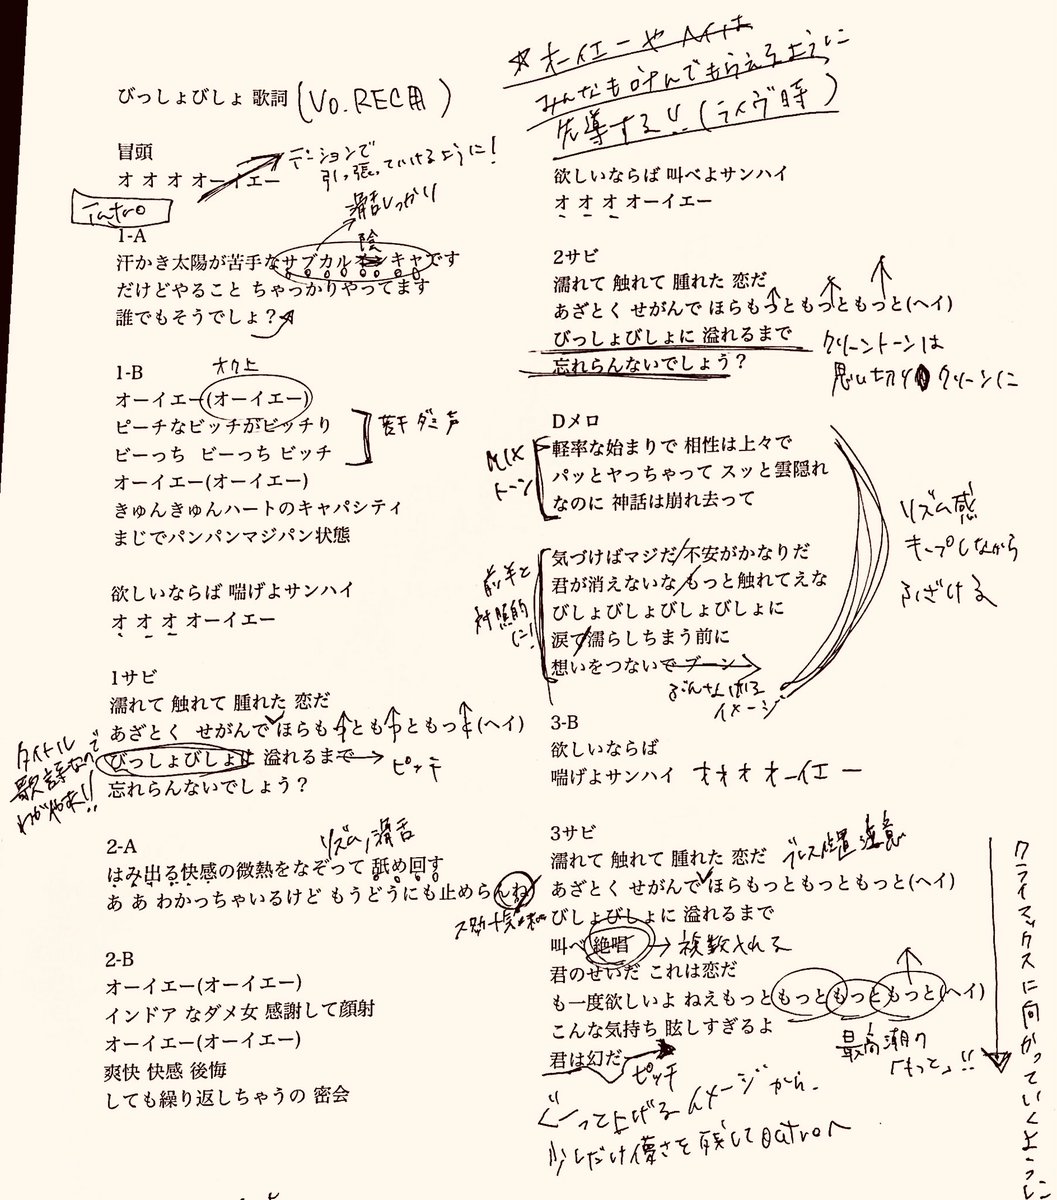 びっしょびしょ 歌詞 (Vo.REC用)
冒頭
オ オ オ オーイエー
テーションで
引っ張っていけるように!
Intro
滑舌しっかり
1-A
陰
汗かき太陽が苦手なサブカル キャです
だけどやること ちゃっかりやってます
誰でもそうでしょ?
1-B
オク上
オーイエー(オーイエー)
ピーチなビッチがビッチり
ビーっち ビーっち ビッチ
若干 ダミ声
オーイエー(オーイエー)
きゅんきゅんハートのキャパシティ
まじでパンパンマジパン状態
欲しいならば 喘げよサンハイ
オ オ オ オーイエー
1サビ
濡れて 触れて 腫れた 恋だ
あざとく せがんで ほらもっともっともっと(ヘイ)
びっしょびしょに 溢れるまで
ピッチ
忘れらんないでしょう?
タイトル
歌詞なので
2-A
リズム, 滑舌
はみ出る快感の微熱をなぞって 舐め回す
あ あ わかっちゃいるけど もうどうにも止めらんね
2-B
オーイエー(オーイエー)
インドア なダメ女 感謝して顔射
オーイエー(オーイエー)
爽快 快感 後悔
しても繰り返しちゃうの 密会
☆オーイエーやヘイは
みんなも叫んでもらえるように
先導する!!(ライヴ時)
欲しいならば 叫べよサンハイ
オ オ オ オーイエー
2サビ
濡れて 触れて 腫れた 恋だ
あざとく せがんで ほらもっともっともっと(ヘイ)
びっしょびしょに 溢れるまで
忘れらんないでしょう?
クリーントーンは
思い切りクリーンに
Dメロ
MIX
トーン
軽率な始まりで 相性は上々で
パッとヤっちゃって スッと雲隠れ
なのに 神話は崩れ去って
リズム感
キープしながら
ふざける
前半と
対照的
に!
気づけばマジだ 不安がかなりだ
君が消えないな もっと触れてえな
びしょびしょびしょびしょに
涙で濡らしちまう前に
想いをつないでブーン
ぶんなげる
イメージ
3-B
欲しいならば
喘げよサンハイ オオオオーイエー
3サビ
濡れて 触れて 腫れた 恋だ
ブレス位置注意
あざとく せがんで ほらもっともっともっと(ヘイ)
びしょびしょに 溢れるまで
叫べ 絶唱 → 複数される
君のせいだ これは恋だ
も一度欲しいよ ねえもっともっともっともっと(ヘイ)
こんな気持ち 眩しすぎるよ
最高潮の
「もっと」!!
君は幻だ
ピッチ
ぐーって上げるイメージから、
少しだけ儚さを残してOutroへ
クライマックスに向かっていくように